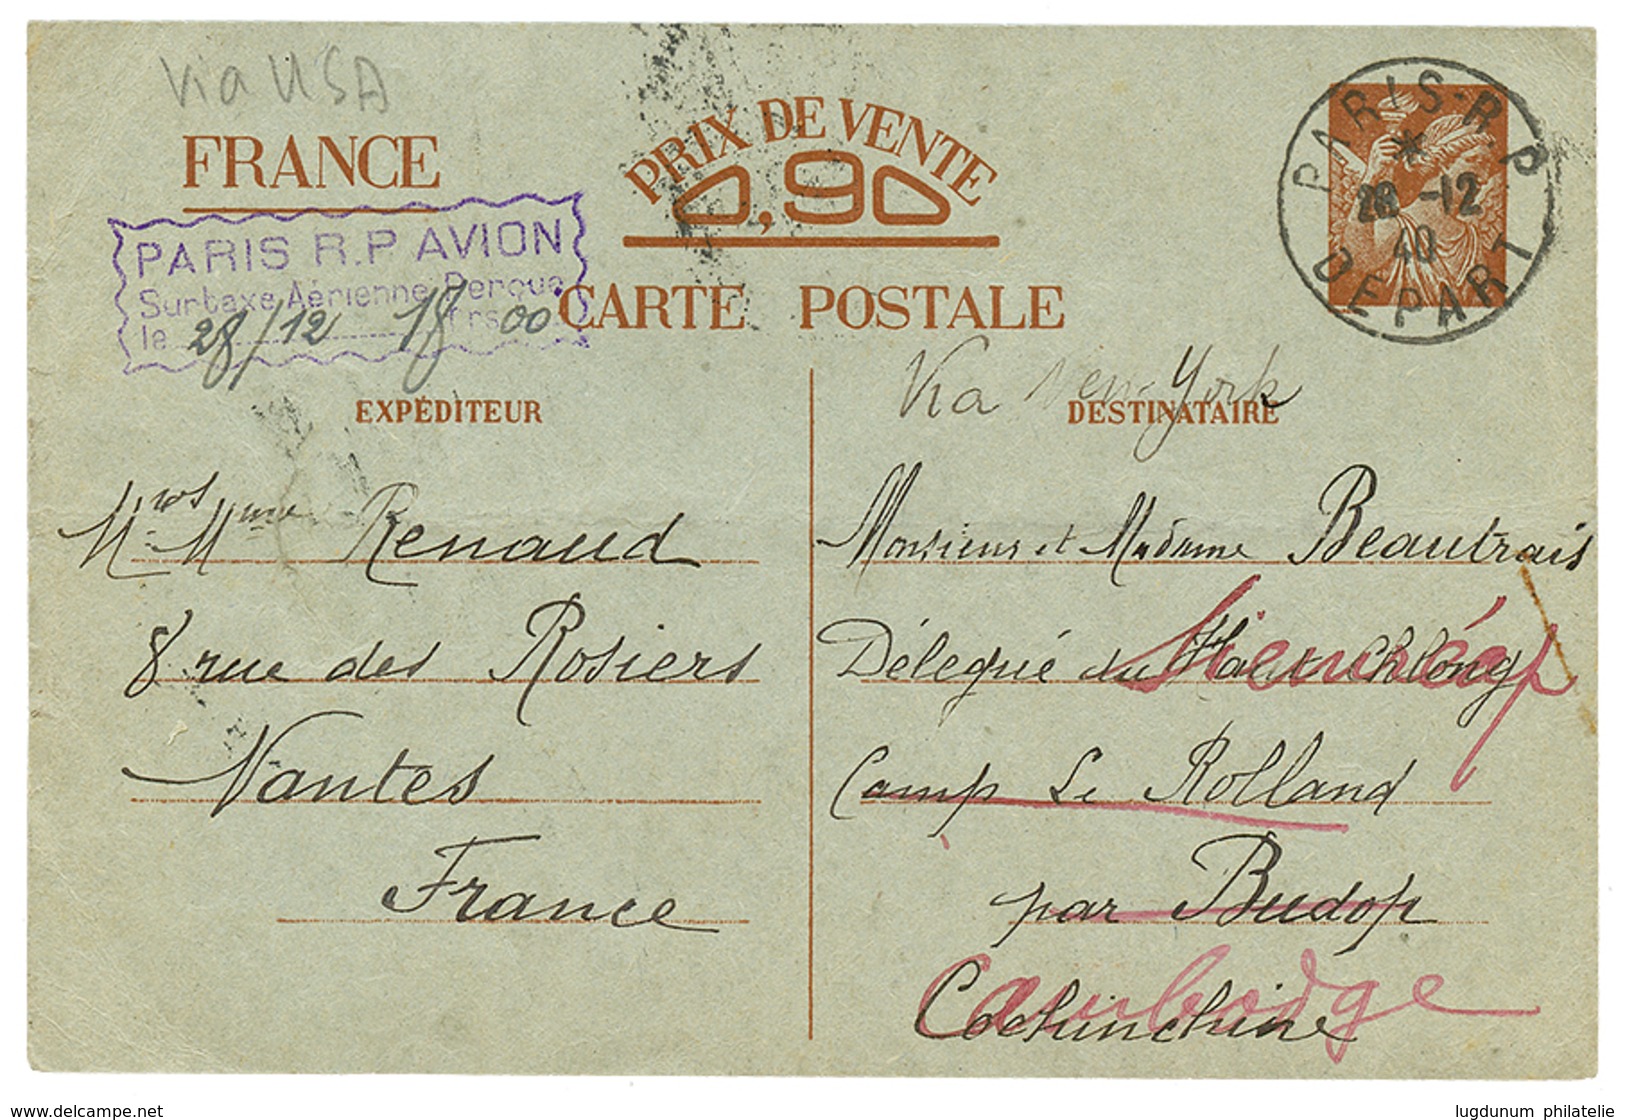 Via USA
FRANCE
PRIX DE VENTE
0,90
PARIS - R.P
*
28 -12
40
DEPART
PARIS R.P AVION
Surtaxe Aérienne Perçue
le 28/12 18 frs 00
CARTE POSTALE
Via New-York
EXPÉDITEUR
DESTINATAIRE
Mr et Mme Renaud
8 rue des Rosiers
Nantes
France
Monsieur et Madame Beautrais
Délegué du Haut Chlong
Siemréap
Camp Le Rolland
par Budop
Cochinchine
Cambodge
www.delcampe.com
lugdunum philatelie